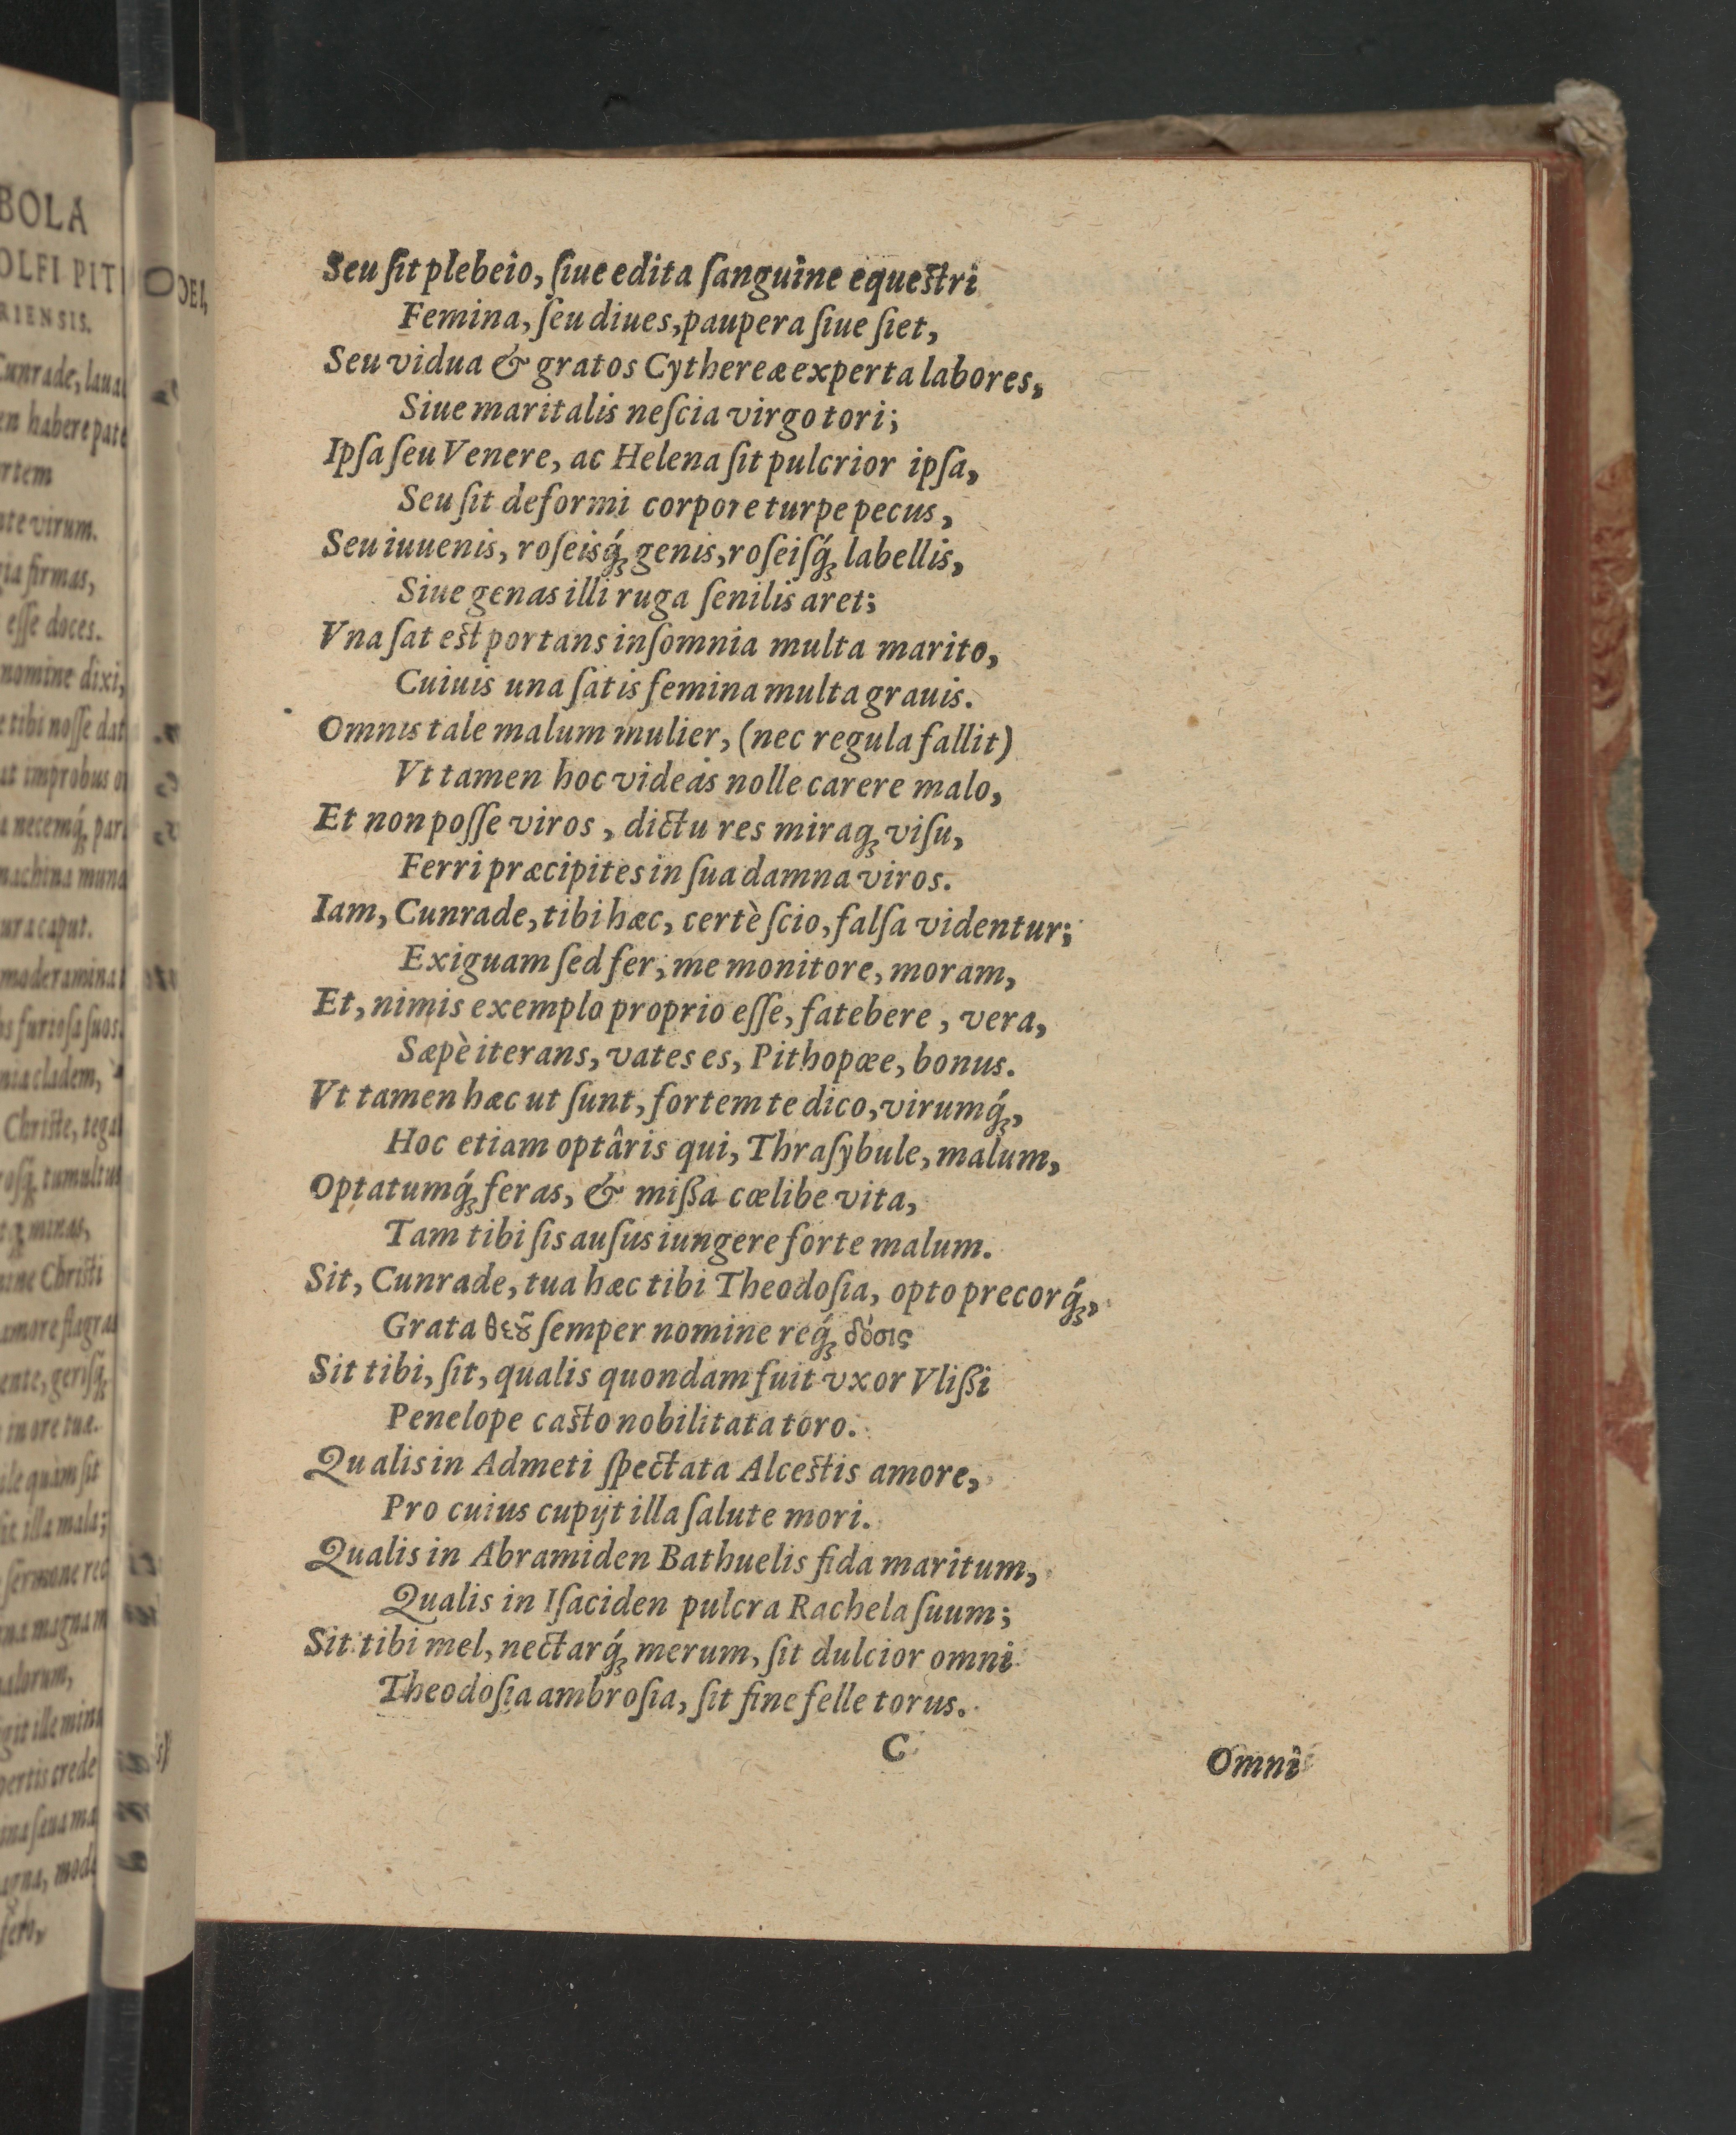 BOLA
OLFI PIT
RIENSIS.
Cunrade,
en habere
rtem
te virum.
firmas,
esse doces.
nomine dixi,
tibi nosse
improbus
machina
caput.
cladem,
Christe,
tumultus
minas,
Christi
amore
ore tuæ.
quàm sit
sit illa mala;
sermone
magnam
crede
Seu ſit plebeio, ſiue edita ſanguine equeſtri
Femina, ſeu diues, paupera ſiue ſiet,
Seu vidua & gratos Cythereæ experta labores,
Siue maritalis neſcia virgo tori;
Ipſa ſeu Venere, ac Helena ſit pulcrior ipſa,
Seu ſit deformi corpore turpe pecus,
Seu iuuenis, roſeisq́; genis, roſeiſq́; labellis,
Siue genas illi ruga ſenilis aret;
Vna ſat eſt portans inſomnia multa marito,
Cuiuis una ſatis femina multa grauis.
Omnis tale malum mulier, (nec regula fallit)
Vt tamen hoc videas nolle carere malo,
Et non poſſe viros, dictu res miraq; viſu,
Ferri præcipites in ſua damna viros.
Iam, Cunrade, tibi hæc, certè ſcio, falſa videntur;
Exiguam ſed fer, me monitore, moram,
Et, nimis exemplo proprio eſſe, fatebere, vera,
Sæpè iterans, vates es, Pithopœe, bonus.
Vt tamen hæc ut ſunt, fortem te dico, virumq́;,
Hoc etiam optâris qui, Thraſybule, malum,
Optatumq́; feras, & mißa cœlibe vita,
Tam tibi ſis auſus iungere forte malum.
Sit, Cunrade, tua hæc tibi Theodoſia, opto precorq́;,
Grata θεȣ͂ ſemper nomine req́; δόσις
Sit tibi, ſit, qualis quondam fuit vxor Vlißi
Penelope caſto nobilitata toro.
Qualis in Admeti ſpectata Alceſtis amore,
Pro cuius cupijt illa ſalute mori.
Qualis in Abramiden Bathuelis fida maritum,
Qualis in Iſaciden pulcra Rachela ſuum;
Sit tibi mel, nectarq́; merum, ſit dulcior omni
Theodoſia ambroſia, ſit ſine felle torus.
C
Omni